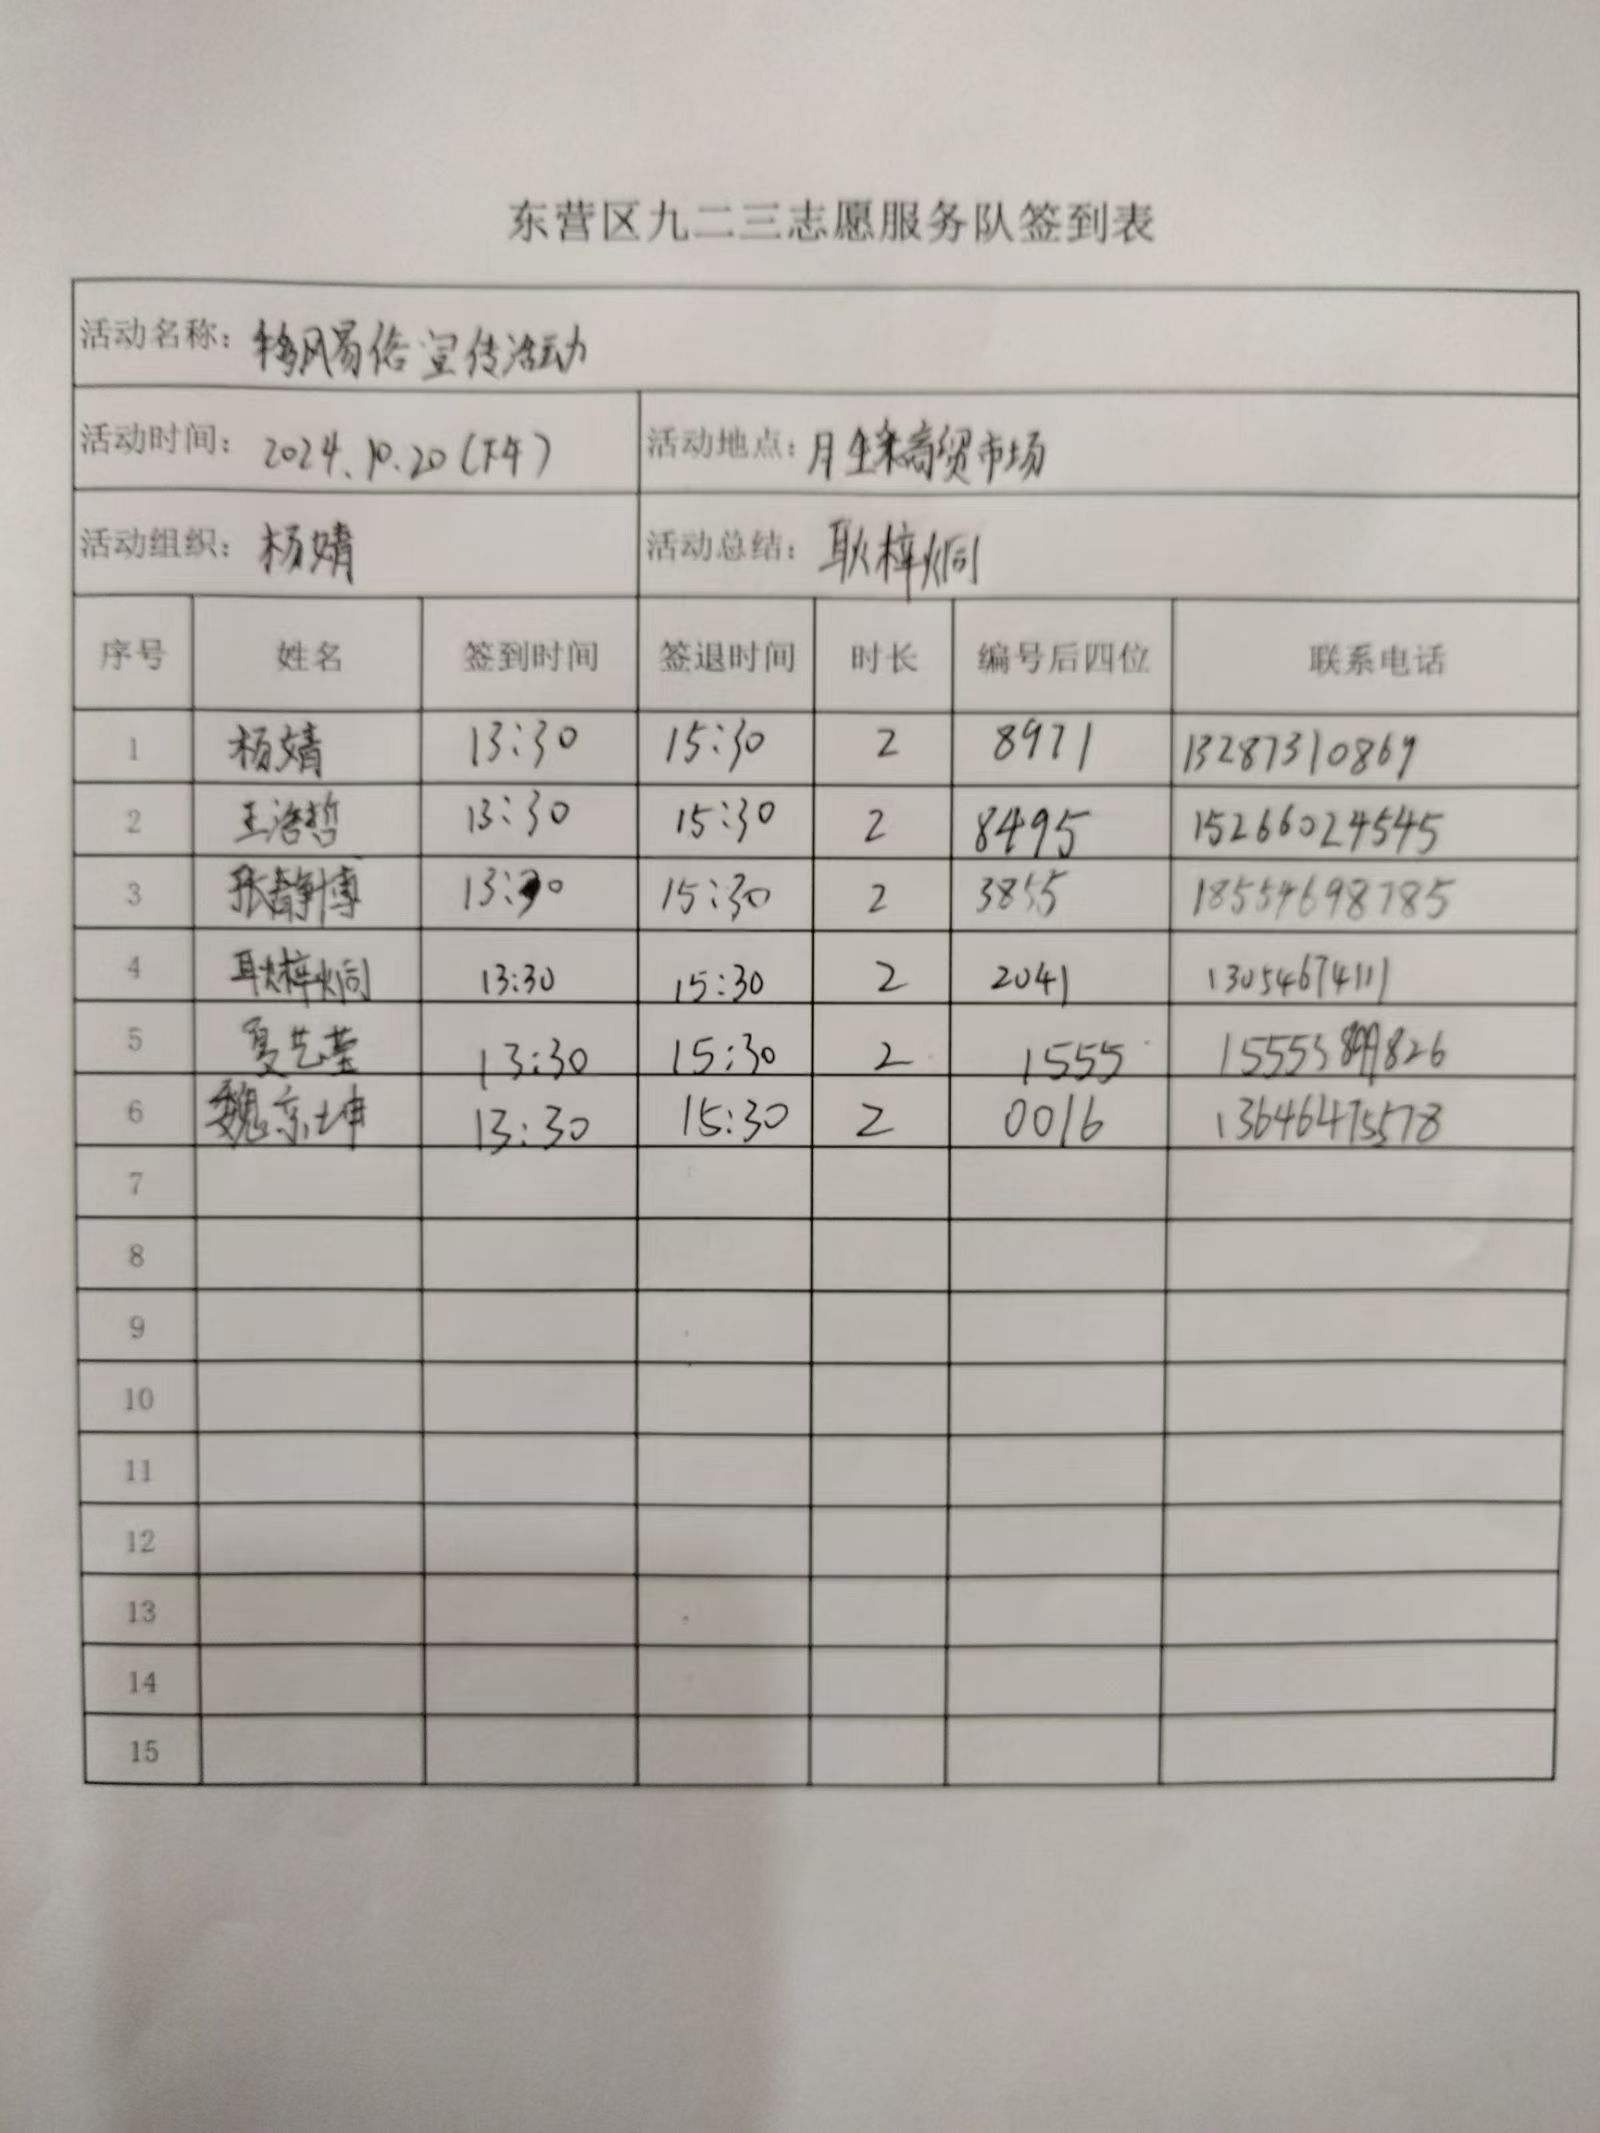 东营区九二三志愿服务队签到表
活动名称：移风易俗宣传活动
活动时间：2024.10.20（下午） 活动地点：月 商贸市场
活动组织：杨婧 活动总结：耿梓炯
序号 姓名 签到时间 签退时间 时长 编号后四位 联系电话
1 杨婧 13:30 15:30 2 8971 13287310869
2 王浩哲 13:30 15:30 2 8495 15266024545
3 张静博 13:30 15:30 2 3855 18554698785
4 耿梓炯 13:30 15:30 2 2041 13054674111
5 夏艺莹 13:30 15:30 2 1555
6 魏京坤 13:30 15:30 2 0016 13646475578
7
8
9
10
11
12
13
14
15